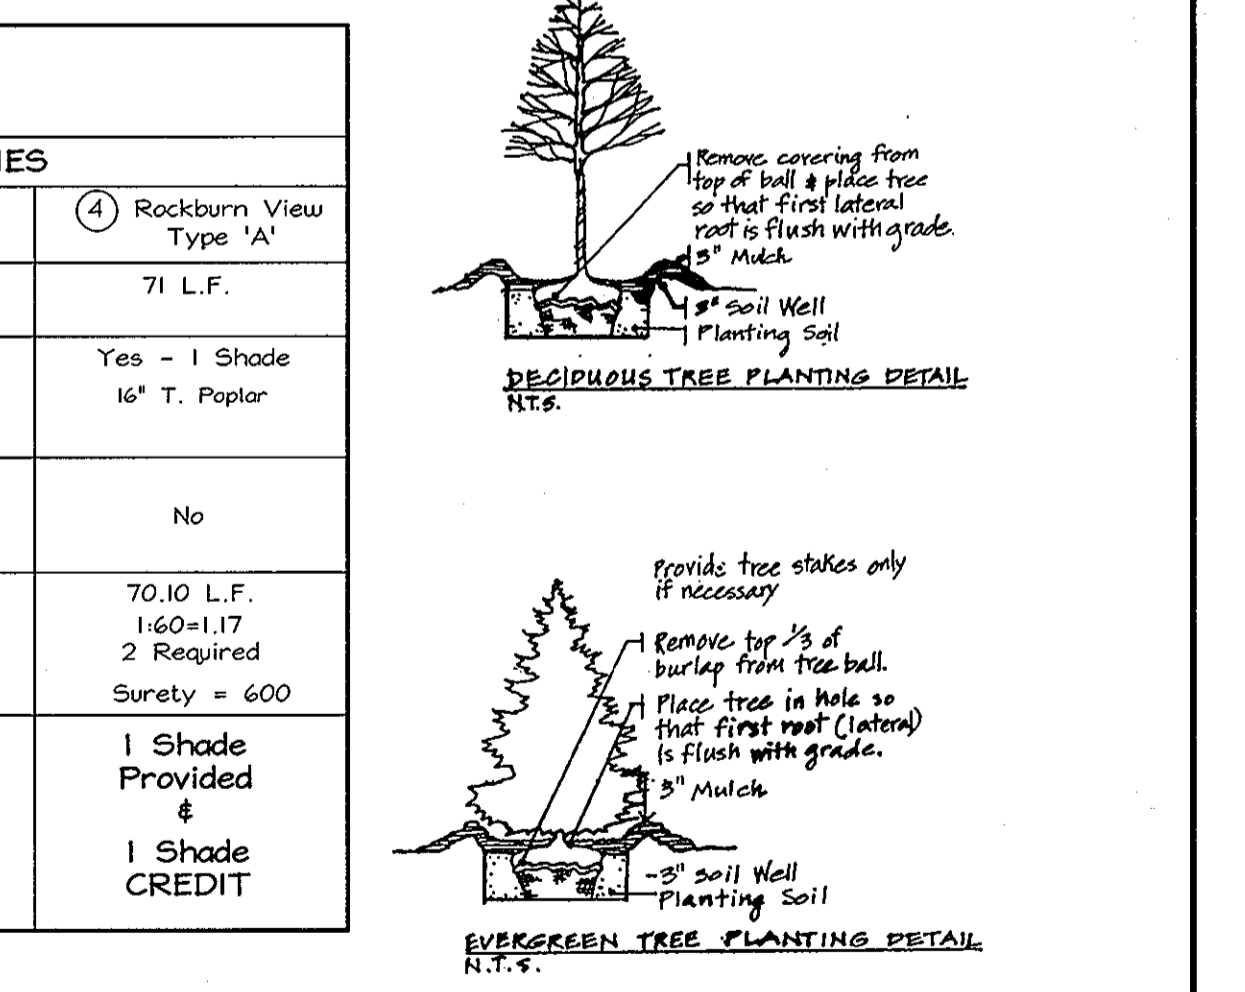 IES
4 Rockburn View
Type 'A'
71 L.F.
Yes - 1 Shade
16" T. Poplar
No
70.10 L.F.
1:60=1.17
2 Required
Surety = 600
1 Shade
Provided
&
1 Shade
CREDIT
Remove covering from
top of ball & place tree
so that first lateral
root is flush with grade.
3" Mulch
3" Soil Well
Planting Soil
DECIDUOUS TREE PLANTING DETAIL
N.T.S.
Provide tree stakes only
if necessary
Remove top 1/3 of
burlap from tree ball.
Place tree in hole so
that first root (lateral)
is flush with grade.
3" Mulch
-3" Soil Well
Planting Soil
EVERGREEN TREE PLANTING DETAIL
N.T.S.